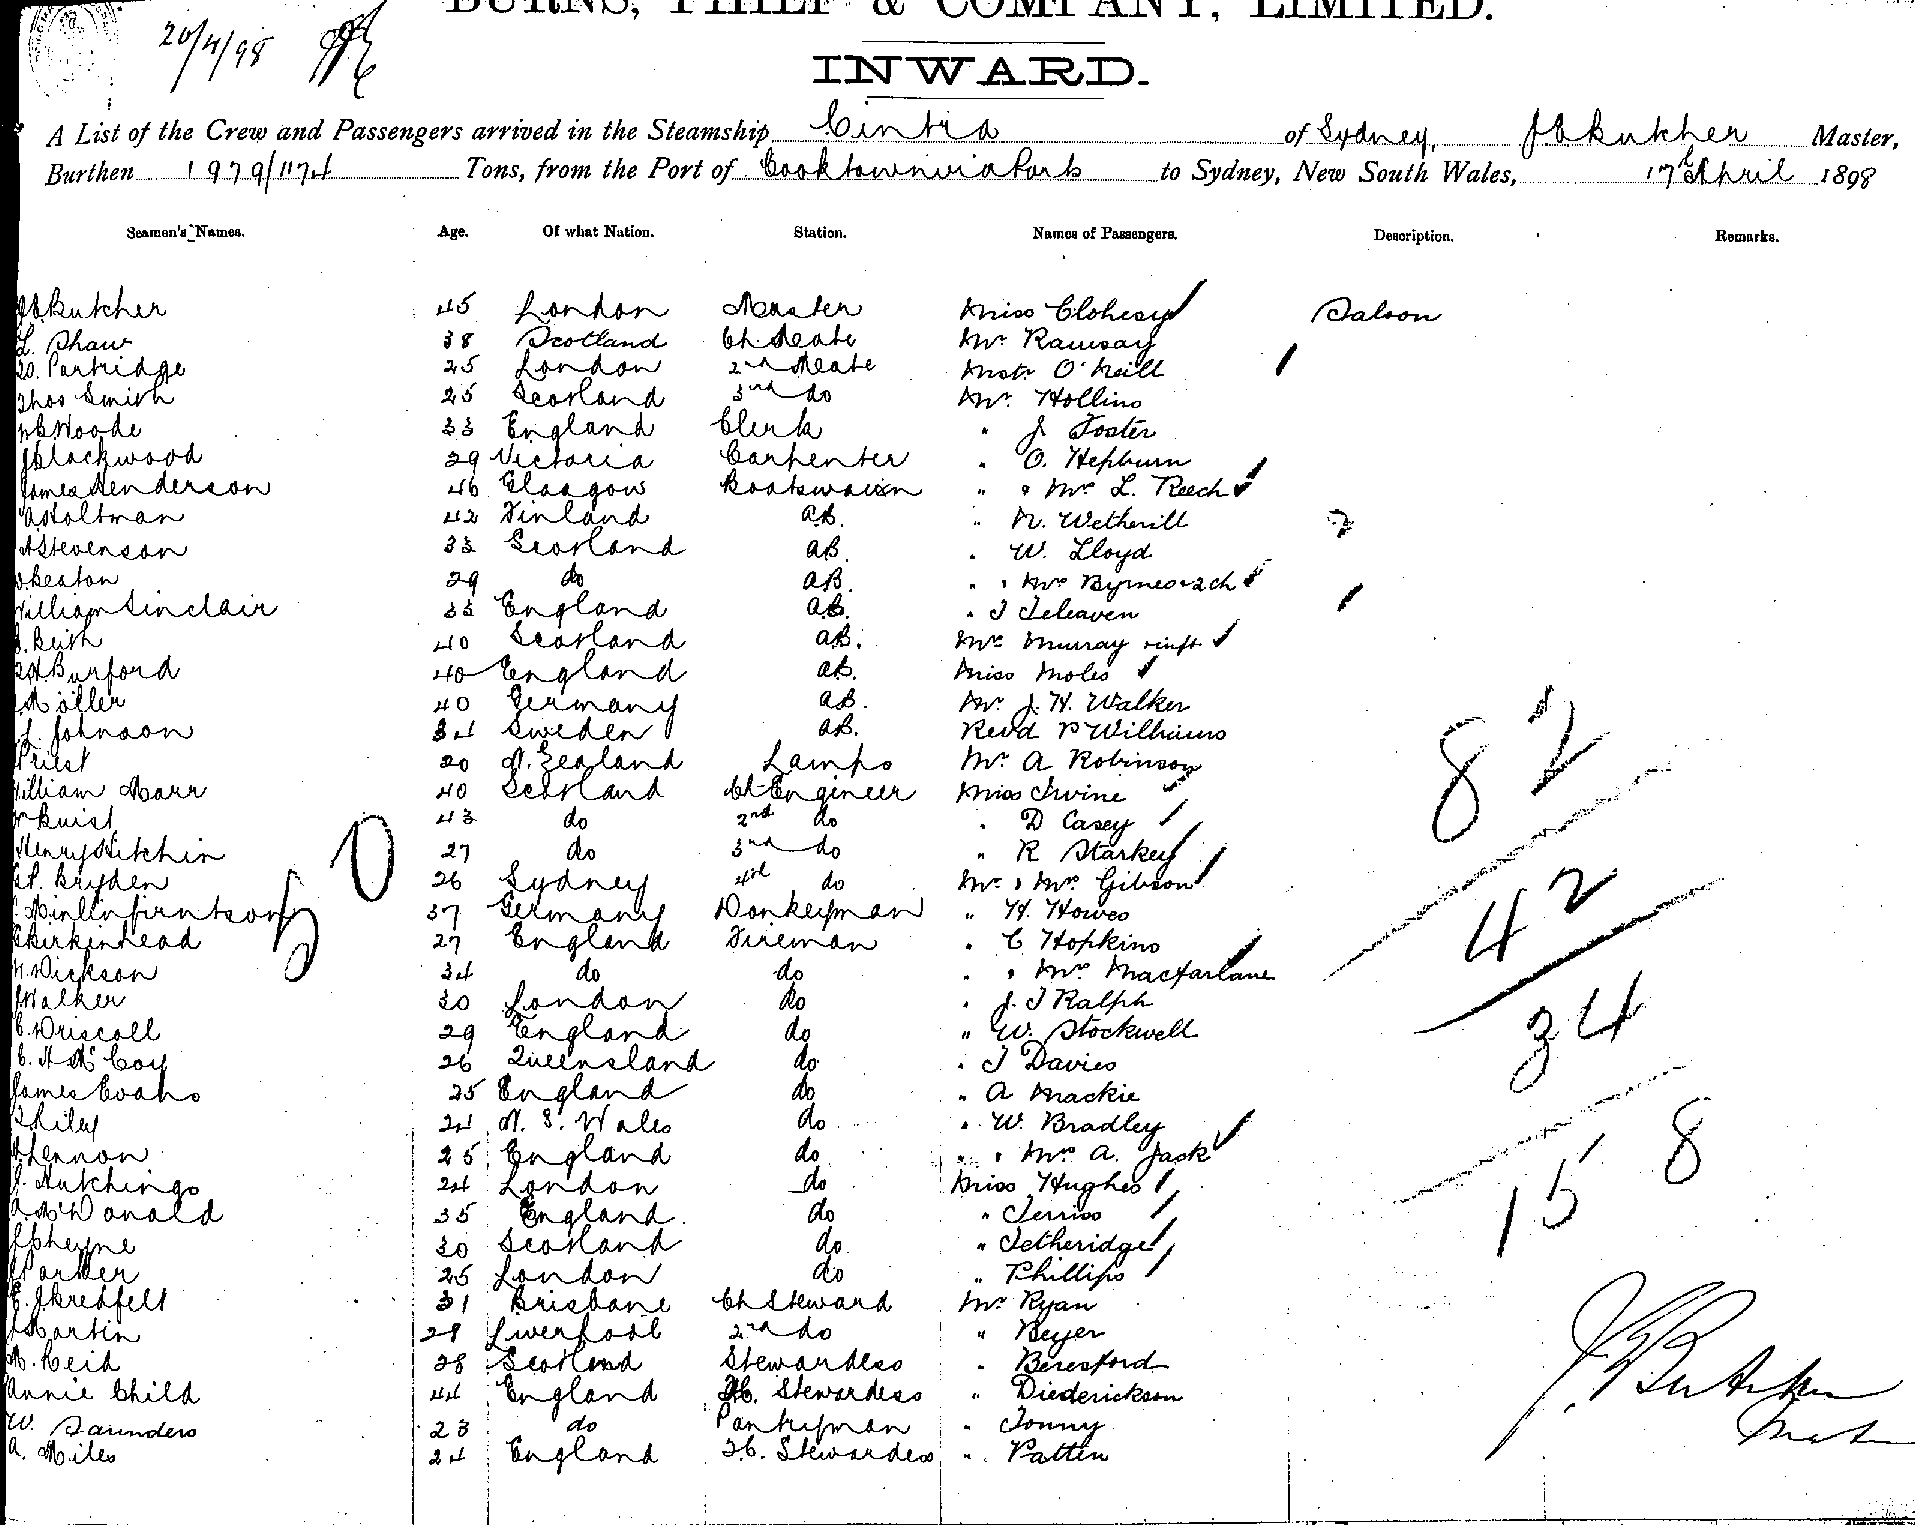 BURNS, PHILP & COMPANY, LIMITED.
20/4/98
INWARD.
A List of the Crew and Passengers arrived in the Steamship Cintra of Sydney, J.E. Butcher Master,
Burthen 1979/1174 Tons, from the Port of Cooktown via Ports to Sydney, New South Wales, 17th April 1898
Seamen's Names. Age. Of what Nation. Station. Names of Passengers. Description. Remarks.
Butcher 45 London Master Miss Clohesy Saloon
L. Shaw 38 Scotland Ch. Mate Mr Ramsay
Partridge 25 London 2nd Mate Mstr O'Neill
Thos Smith 25 Scotland 3rd do Mr Hollins
Woode 33 England Clerk " J Foster
Blackwood 29 Victoria Carpenter " O. Hepburn
James Henderson 46 Glasgow Boatswain " " Mrs L. Reech
Holtman 42 Finland AB. " N. Wetherill
Stevenson 33 Scotland AB. " W. Lloyd
Beaton 29 do AB. " " Mrs Byrnes & 2 ch
William Sinclair 33 England AB. " T Teleaven
Keith 40 Scotland AB. Mrs Murray & inft
Burford 40 England AB. Miss Moles
Möller 40 Germany AB. Mr J. H. Walker
Johnson 34 Sweden AB. Revd P Williams
Priest 20 N. Zealand Lamps Mr A Robinson
William Marr 40 Scotland Ch Engineer Miss Irvine
43 do 2nd do " D Casey
Henry Kitchin 27 do 3rd do " R Starkey
Bryden 26 Sydney 4th do Mr & Mrs Gibson
37 Germany Donkeyman " H. Howes
Birkinhead 27 England Fireman " C Hopkins
Dickson 34 do do " " Mrs Macfarlane
Walker 30 London do " J. T Ralph
Driscoll 29 England do " W. Stockwell
C. H McCoy 26 Queensland do " T Davies
James Evans 25 England do " A Mackie
24 N. S. Wales do " W. Bradley
Lennon 25 England do " " Mrs A. Jack
J. Hutchings 24 London do Miss Hughes
A. McDonald 35 England do " Terriss
30 Scotland do " Tetheridge
Parker 25 London do " Phillips
31 Brisbane Ch Steward Mr Ryan
Martin 28 Liverpool 2nd do " Beyer
M. Reid 28 Scotland Stewardess " Beresford
Annie Child 44 England Stewardess " Diederickson
W. Saunders 23 do Pantryman " Tonny
A. Miles 24 England Stewardess " Patten
82
42
34
158
J. E. Butcher